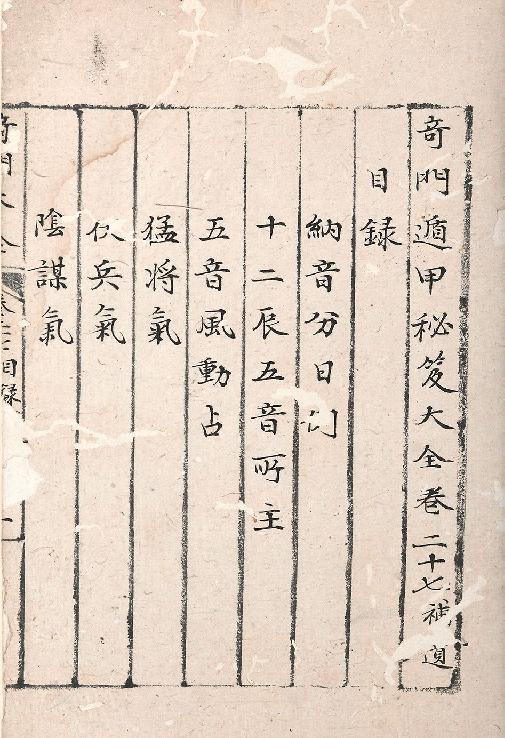 奇門遁甲秘笈大全卷二十七補遺
目録
納音分日
十二辰五音所主
五音風動占
猛將氣
伏兵氣
陰謀氣
奇門大全
卷二七目録
一